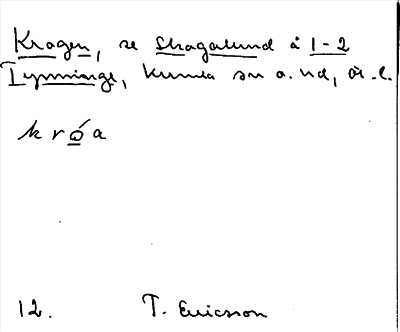 Kragen, se Skagalund å 1-2
Tynninge, Kumla sn o. hd, Ör. l.
k r ó a
12. T. Ericsson